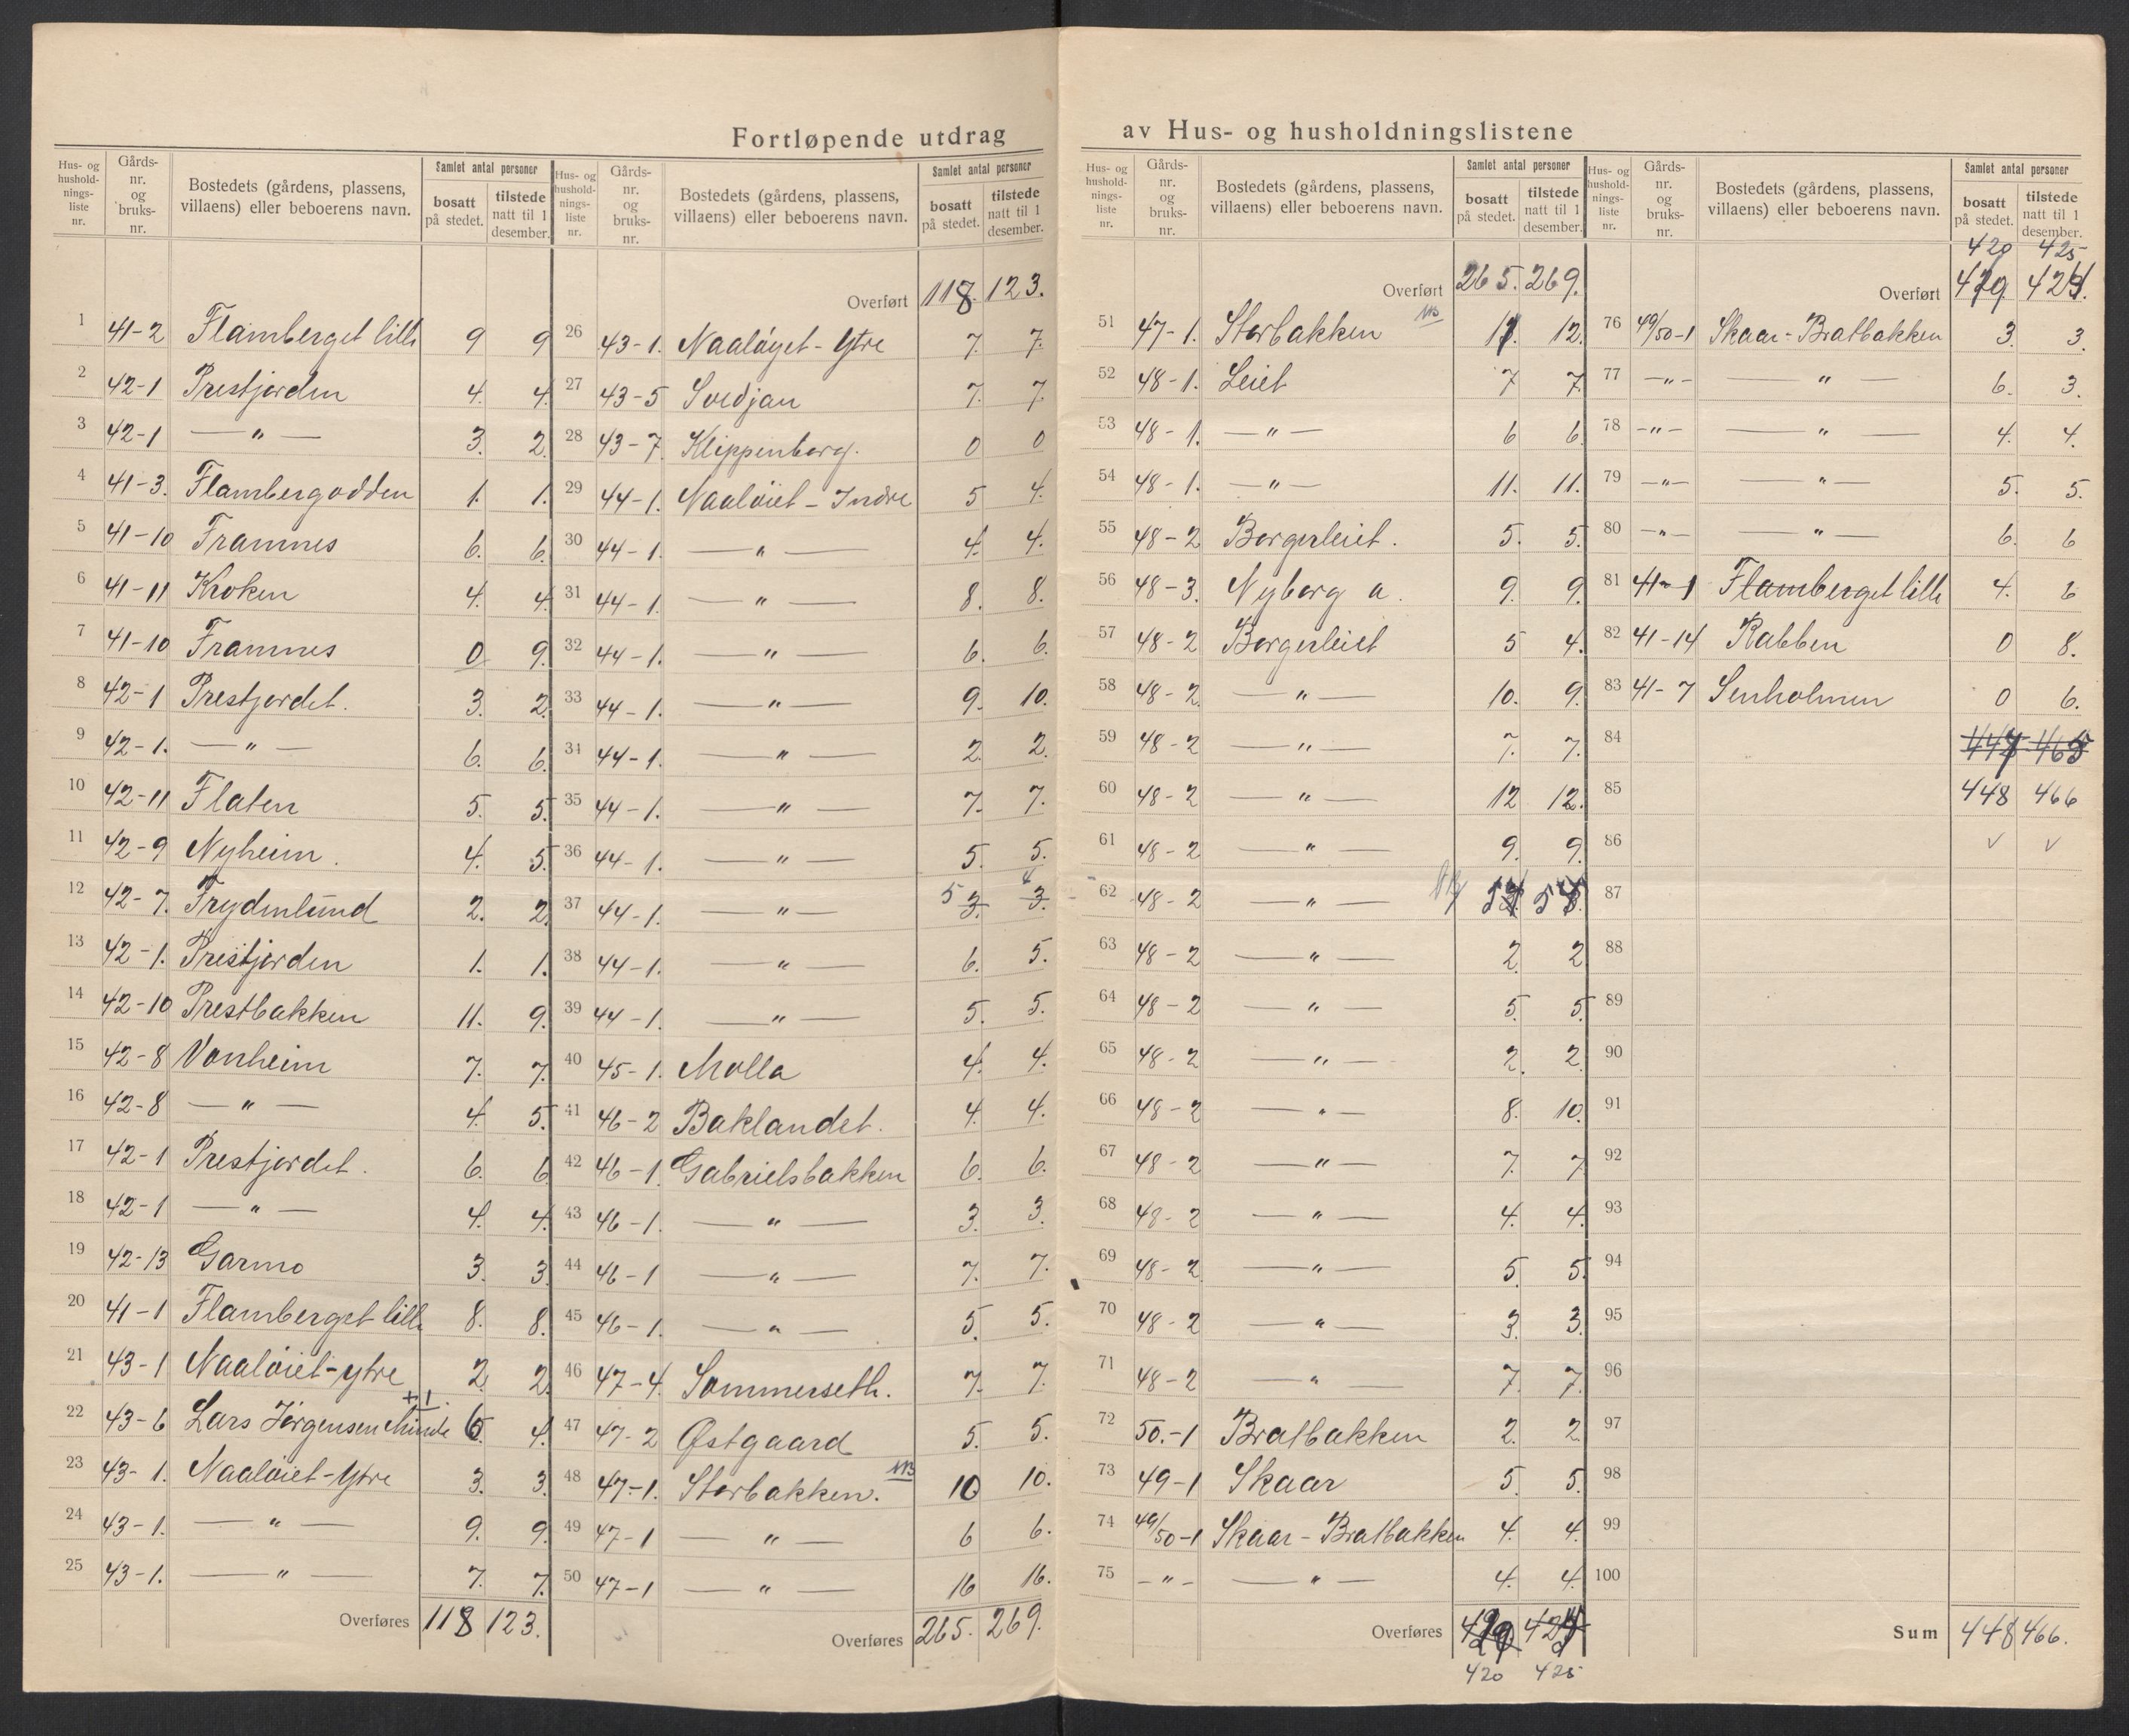 Fortløpende utdrag
av Hus- og husholdningslistene
Hus- og hushold-nings-liste nr. Gårds-nr. og bruks-nr. Bostedets (gårdens, plassens, villaens) eller beboerens navn. Samlet antal personer bosatt på stedet. tilstede natt til 1 desember.
1 41-2 Flamberget lille 9 9
2 42-1 Prestjorden 4. 4.
3 42-1 —"— 3. 2.
4 41-3. Flambergodden 1. 1.
5 41-10 Framnes 6. 6.
6 41-11 Kroken 4. 4.
7 41-10 Framnes 0 9.
8 42-1 Prestjordet. 3. 2.
9 42-1. —"— 6. 6.
10 42-11 Flaten 5. 5.
11 42-9 Nyheim. 4. 5.
12 42-7. Frydenlund 2. 2.
13 42-1. Prestjorden 1. 1.
14 42-10 Prestbakken 11. 9.
15 42-8 Vonheim 7. 7.
16 42-8 —"— 4. 5.
17 42-1 Prestjordet. 6. 6
18 42-1 —"— 4. 4.
19 42-13 Garmo 3. 3.
20 41-1 Flamberget lille 8. 8.
21 43-1 Naaløiet-ytre 2. 2.
+1.
22 43-6 Lars Jørgensen Minde 6. 4.
23 43-1. Naaløiet-Ytre 3. 3.
24 43-1. —"— 9. 9.
25 43-1. —"— 7. 7.
Overføres 118 123.
Hus- og hushold-nings-liste nr. Gårds-nr. og bruks-nr. Bostedets (gårdens, plassens, villaens) eller beboerens navn. Samlet antal personer bosatt på stedet. tilstede natt til 1 desember.
Overført 118. 123.
26 43-1. Naaløyet-Ytre 7. 7.
27 43-5 Svedjan 7. 7.
28 43-7. Klippenborg. 0 0
29 44-1. Naaløiet-Indre 5 4.
30 44-1. —"— 4. 4.
31 44-1. —"— 8. 8.
32 44-1. —"— 6. 6.
33 44-1. —"— 9. 10.
34 44-1. —"— 2. 2.
35 44-1. —"— 7. 7.
36 44-1. —"— 5. 5.
37 44-1. —"— 5 3. 4 3.
38 44-1. —"— 6. 5.
39 44-1. —"— 5. 5.
40 45-1. Molla 4. 4.
41 46-2 Baklandet. 4. 4.
42 46-1. Gabrielsbakken 6. 6.
43 46-1. —"— 3. 3.
44 46-1 —"— 7. 7.
45 46-1. —"— 5. 5.
46 47-4. Sommerseth. 7. 7.
47 47-2 Østgaard 5. 5.
48 47-1. Storbakken. NB 10 10.
49 47-1 —"— 6 6.
50 47-1 —"— 16 16.
Overføres 265. 269.
Hus- og hushold-nings-liste nr. Gårds-nr. og bruks-nr. Bostedets (gårdens, plassens, villaens) eller beboerens navn. Samlet antal personer bosatt på stedet. tilstede natt til 1 desember.
Overført 265. 269.
51 47-1. Storbakken NB 11. 12.
52 48-1. Leiet 7 7.
53 48-1. —"— 6 6.
54 48-1. —"— 11. 11.
55 48-2 Borgerleiet. 5. 5.
56 48-3. Nyborg a. 9. 9.
57 48-2 Borgerleiet 5 4.
58 48-2. —"— 10. 9.
59 48-2 —"— 7. 7.
60 48-2 —"— 12 12.
61 48-2 —"— 9. 9.
62 48-2 —"—
63 48-2 —"— 2. 2
64 48-2 —"— 5. 5.
65 48-2 —"— 2. 2.
66 48-2 —"— 8. 10.
67 48-2 —"— 7. 7
68 48-2 —"— 4. 4.
69 48-2 —"— 5. 5.
70 48-2 —"— 3. 3.
71 48-2 —"— 7. 7.
72 50.-1 Bratbakken 2. 2
73 49-1 Skaar 5. 5.
74 49/50-1 Skaar-Bratbakken 4. 4.
75 -"- —"— 4. 4.
Overføres
420 425
Hus- og hushold-nings-liste nr. Gårds-nr. og bruks-nr. Bostedets (gårdens, plassens, villaens) eller beboerens navn. Samlet antal personer bosatt på stedet. tilstede natt til 1 desember.
420 425
Overført 419 424.
76 49/50-1 Skaar-Bratbakken 3. 3.
77 -"- —"— 6. 3.
78 -"- —"— 4. 4.
79 -"- —"— 5. 5.
80 -"- —"— 6. 6
81 41-1 Flamberget lille 4. 6
82 41-14 Rabben 0 8.
83 41-7 Senholmen 0 6.
84 447 465
85 448 466
86 v v
87
88
89
90
91
92
93
94
95
96
97
98
99
100
Sum 448 466.